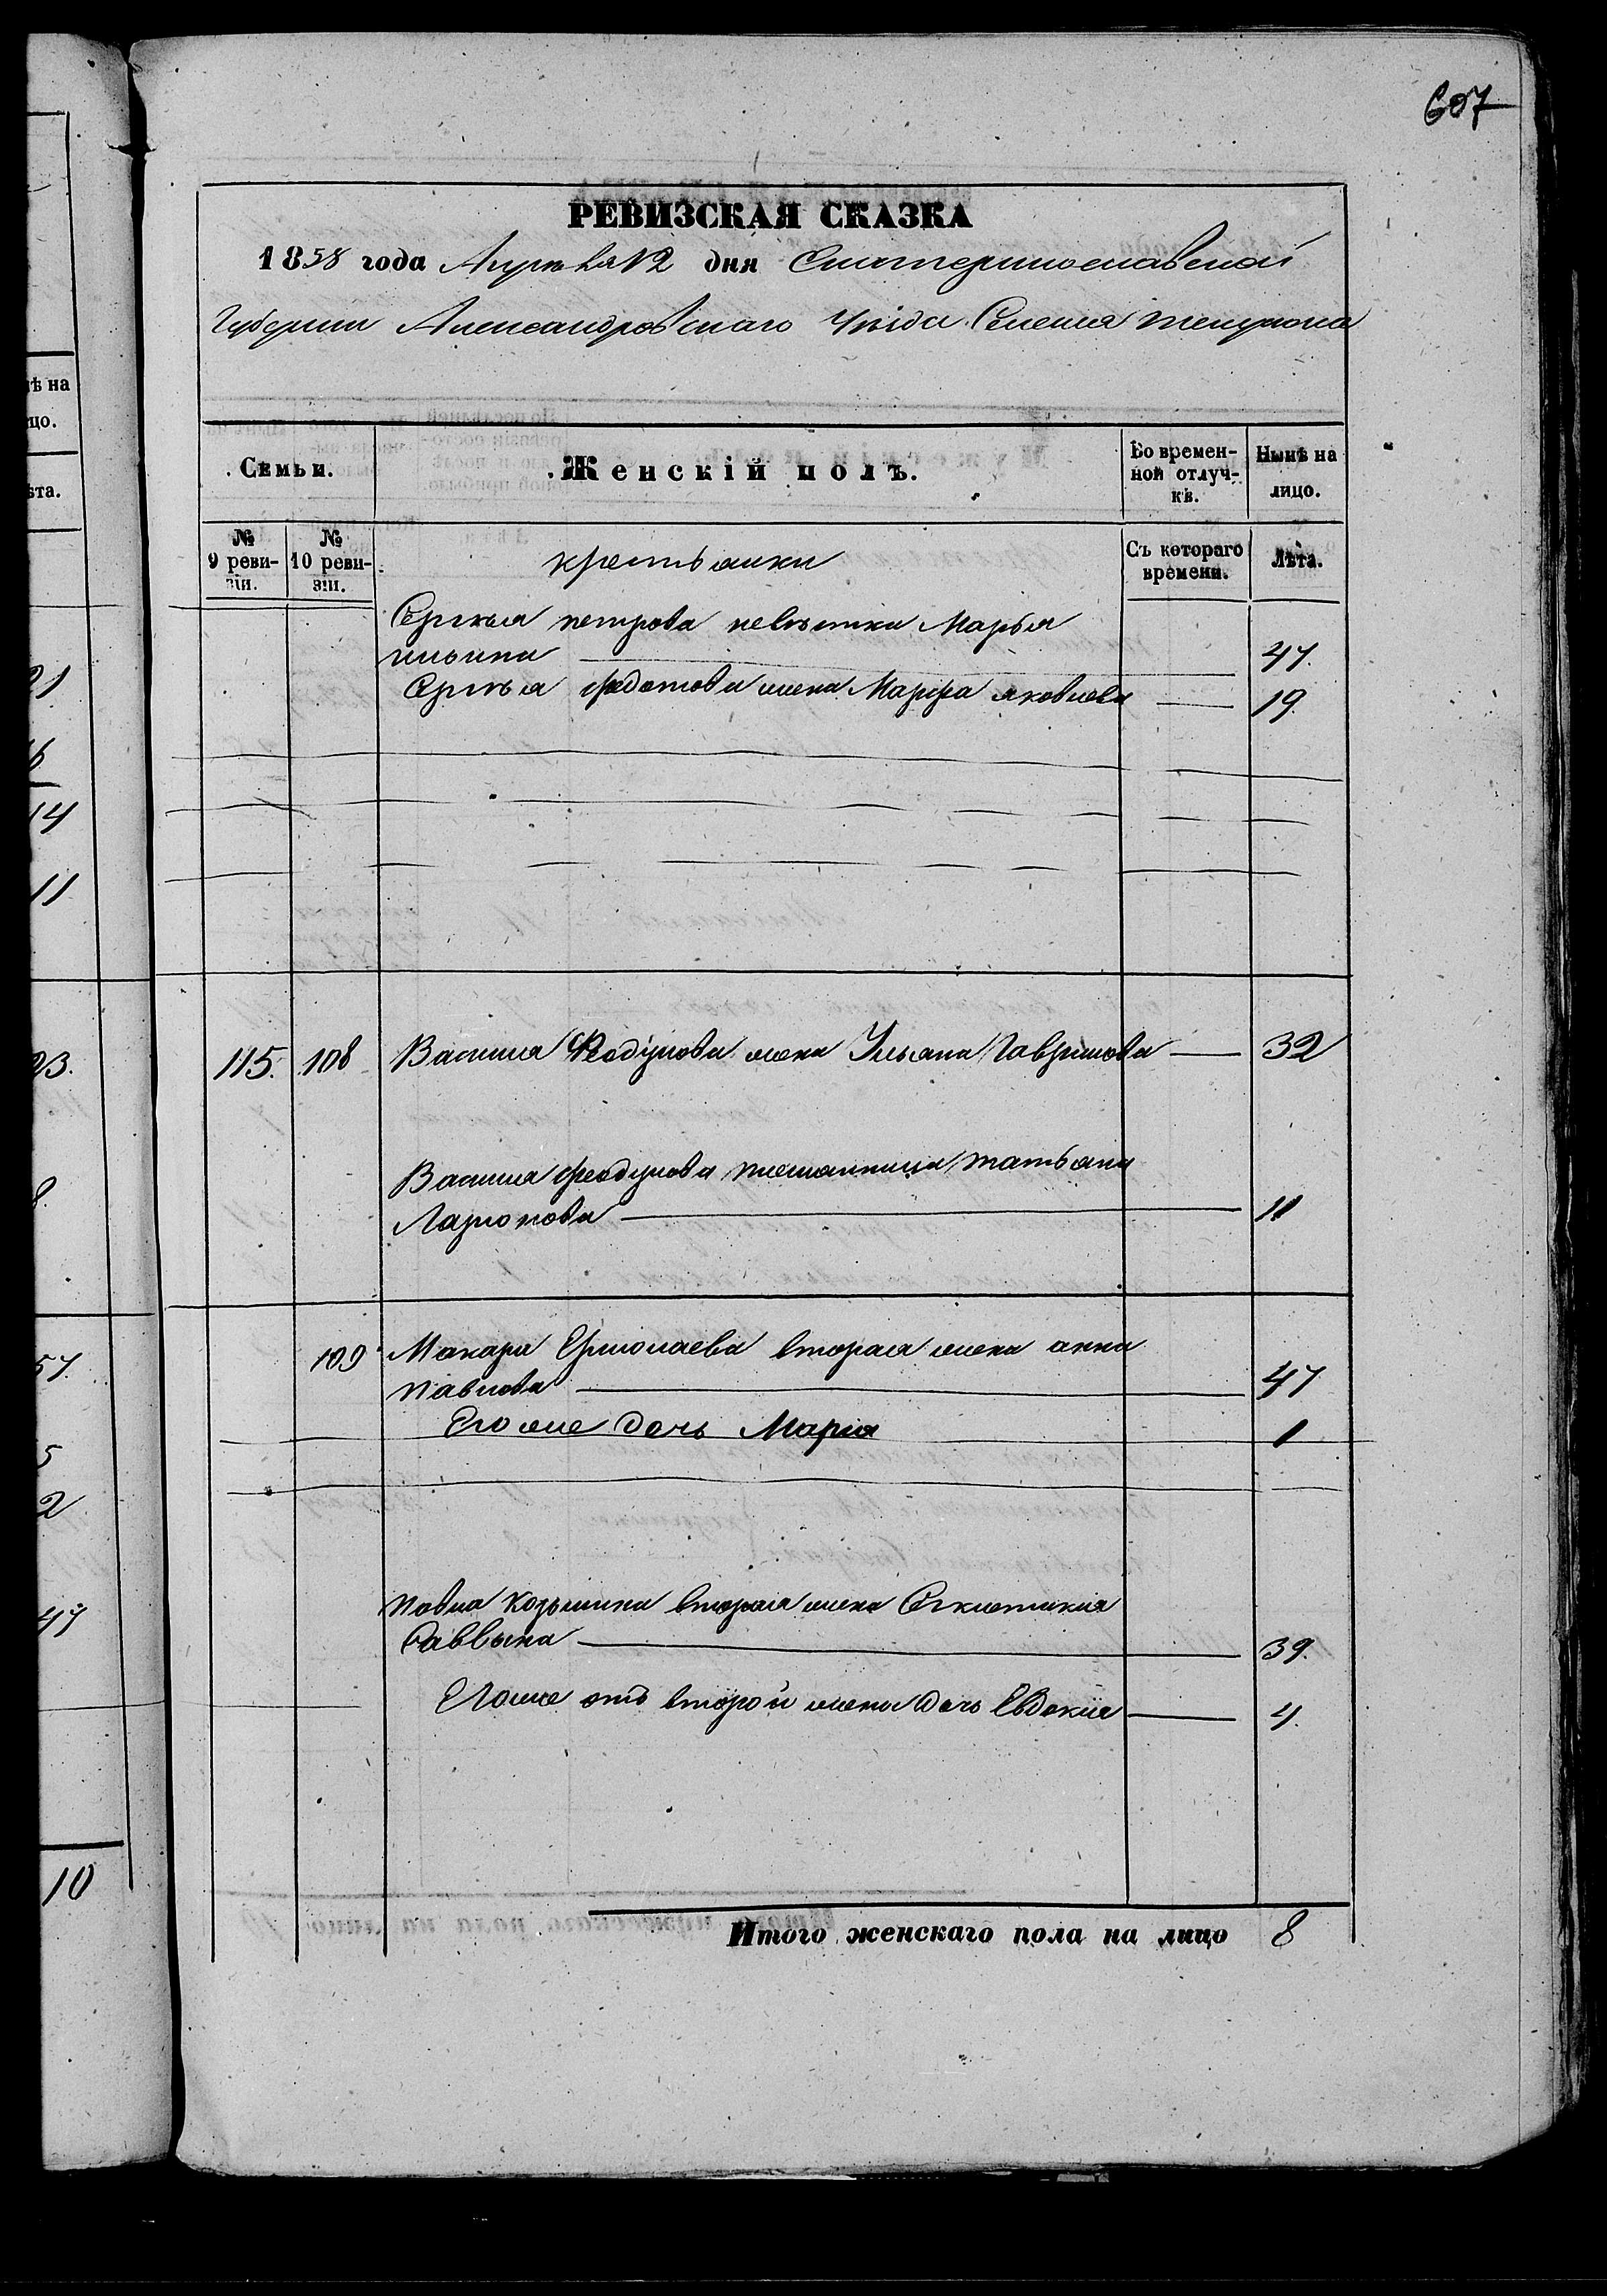 607
РЕВИЗСКАЯ СКАЗКА
1858 года Апреля 12 дня Екатеринославской
Губернии Александровскаго Уѣзда Селения
Семьи. Женскій полъ. Во временной отлучкѣ. Нынѣ на лицо.
№ 9 ревизіи. № 10 ревизіи. крестьянки Съ котораго времени. Лѣта.
Сергѣя петрова невѣстка Марья
ильина 47.
Сергѣя федотова жена Марфа яковлева 19.
115. 108 Василия Феодулова жена Ульяна Гаврилова 32
Василия феодулова племянница татьяна
Ларионова 11
109 Макара Ермолаева вторая жена анна
павлова 47
Его же дочь Мария 1
павла козьмина вторая жена
Саввина 39.
Его же отъ второй жены дочь Евдокия 4.
Итого женскаго пола на лицо 8
ѣ на
цо.
ѣта.
21
14
11
23.
8.
57.
5
2
47
10